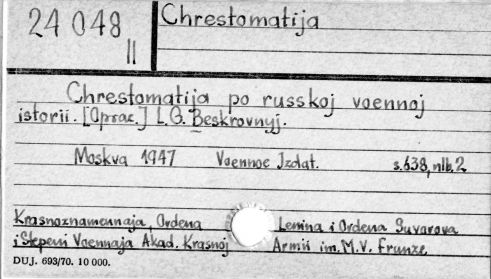 24 048 Chrestomatija
II
Chrestomatija po russkoj voennoj
istorii. [Oprac.] L.G. Beskrovnyj.
Moskva 1947 Voennoe Izdat. s.638, nlb.2
Krasnoznamennaja, Ordena Lenina i Ordena Suvarova
i Stepeni Voennaja Akad. Krasnoj Armii im. M.V. Frunze
DUJ. 693/70. 10 000.